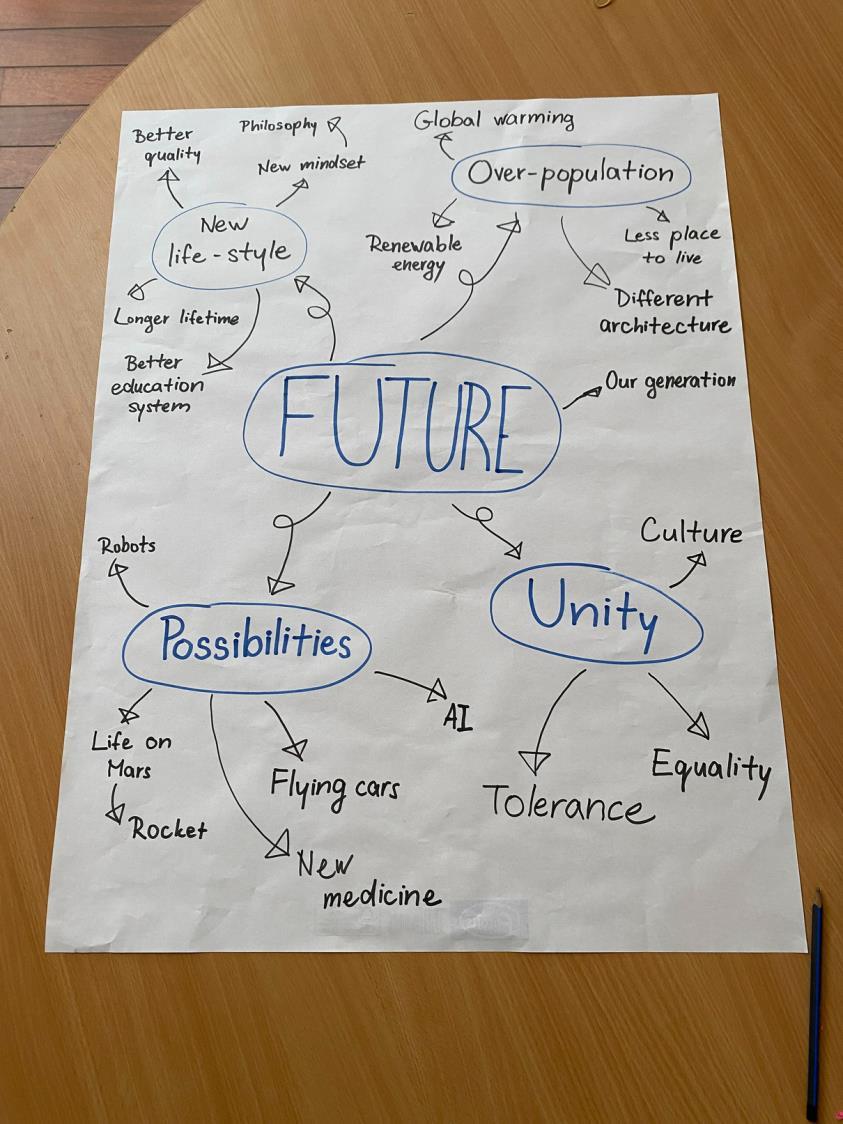 Better
quality
Philosophy
New mindset
New
life-style
Longer lifetime
Better
education
system
Global warming
Over-population
Renewable
energy
Less place
to live
Different
architecture
FUTURE
Our generation
Robots
Possibilities
Life on
Mars
Rocket
Flying cars
New
medicine
AI
Culture
Unity
Tolerance
Equality